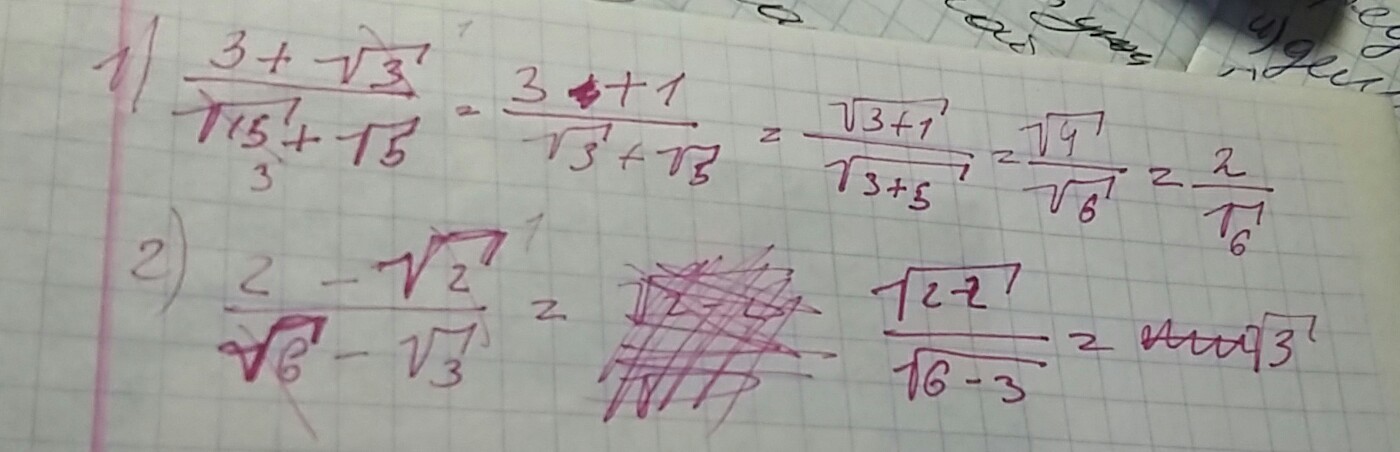 1) (3 + √3)/(√15 + √5) = (3 + 1)/(√3 + √5) = √(3+1)/√(3+5) = √4/√6 = 2/√6
1
3
2) (2 - √2)/(√6 - √3) = √(2-2)/√(6-3) = √3
1